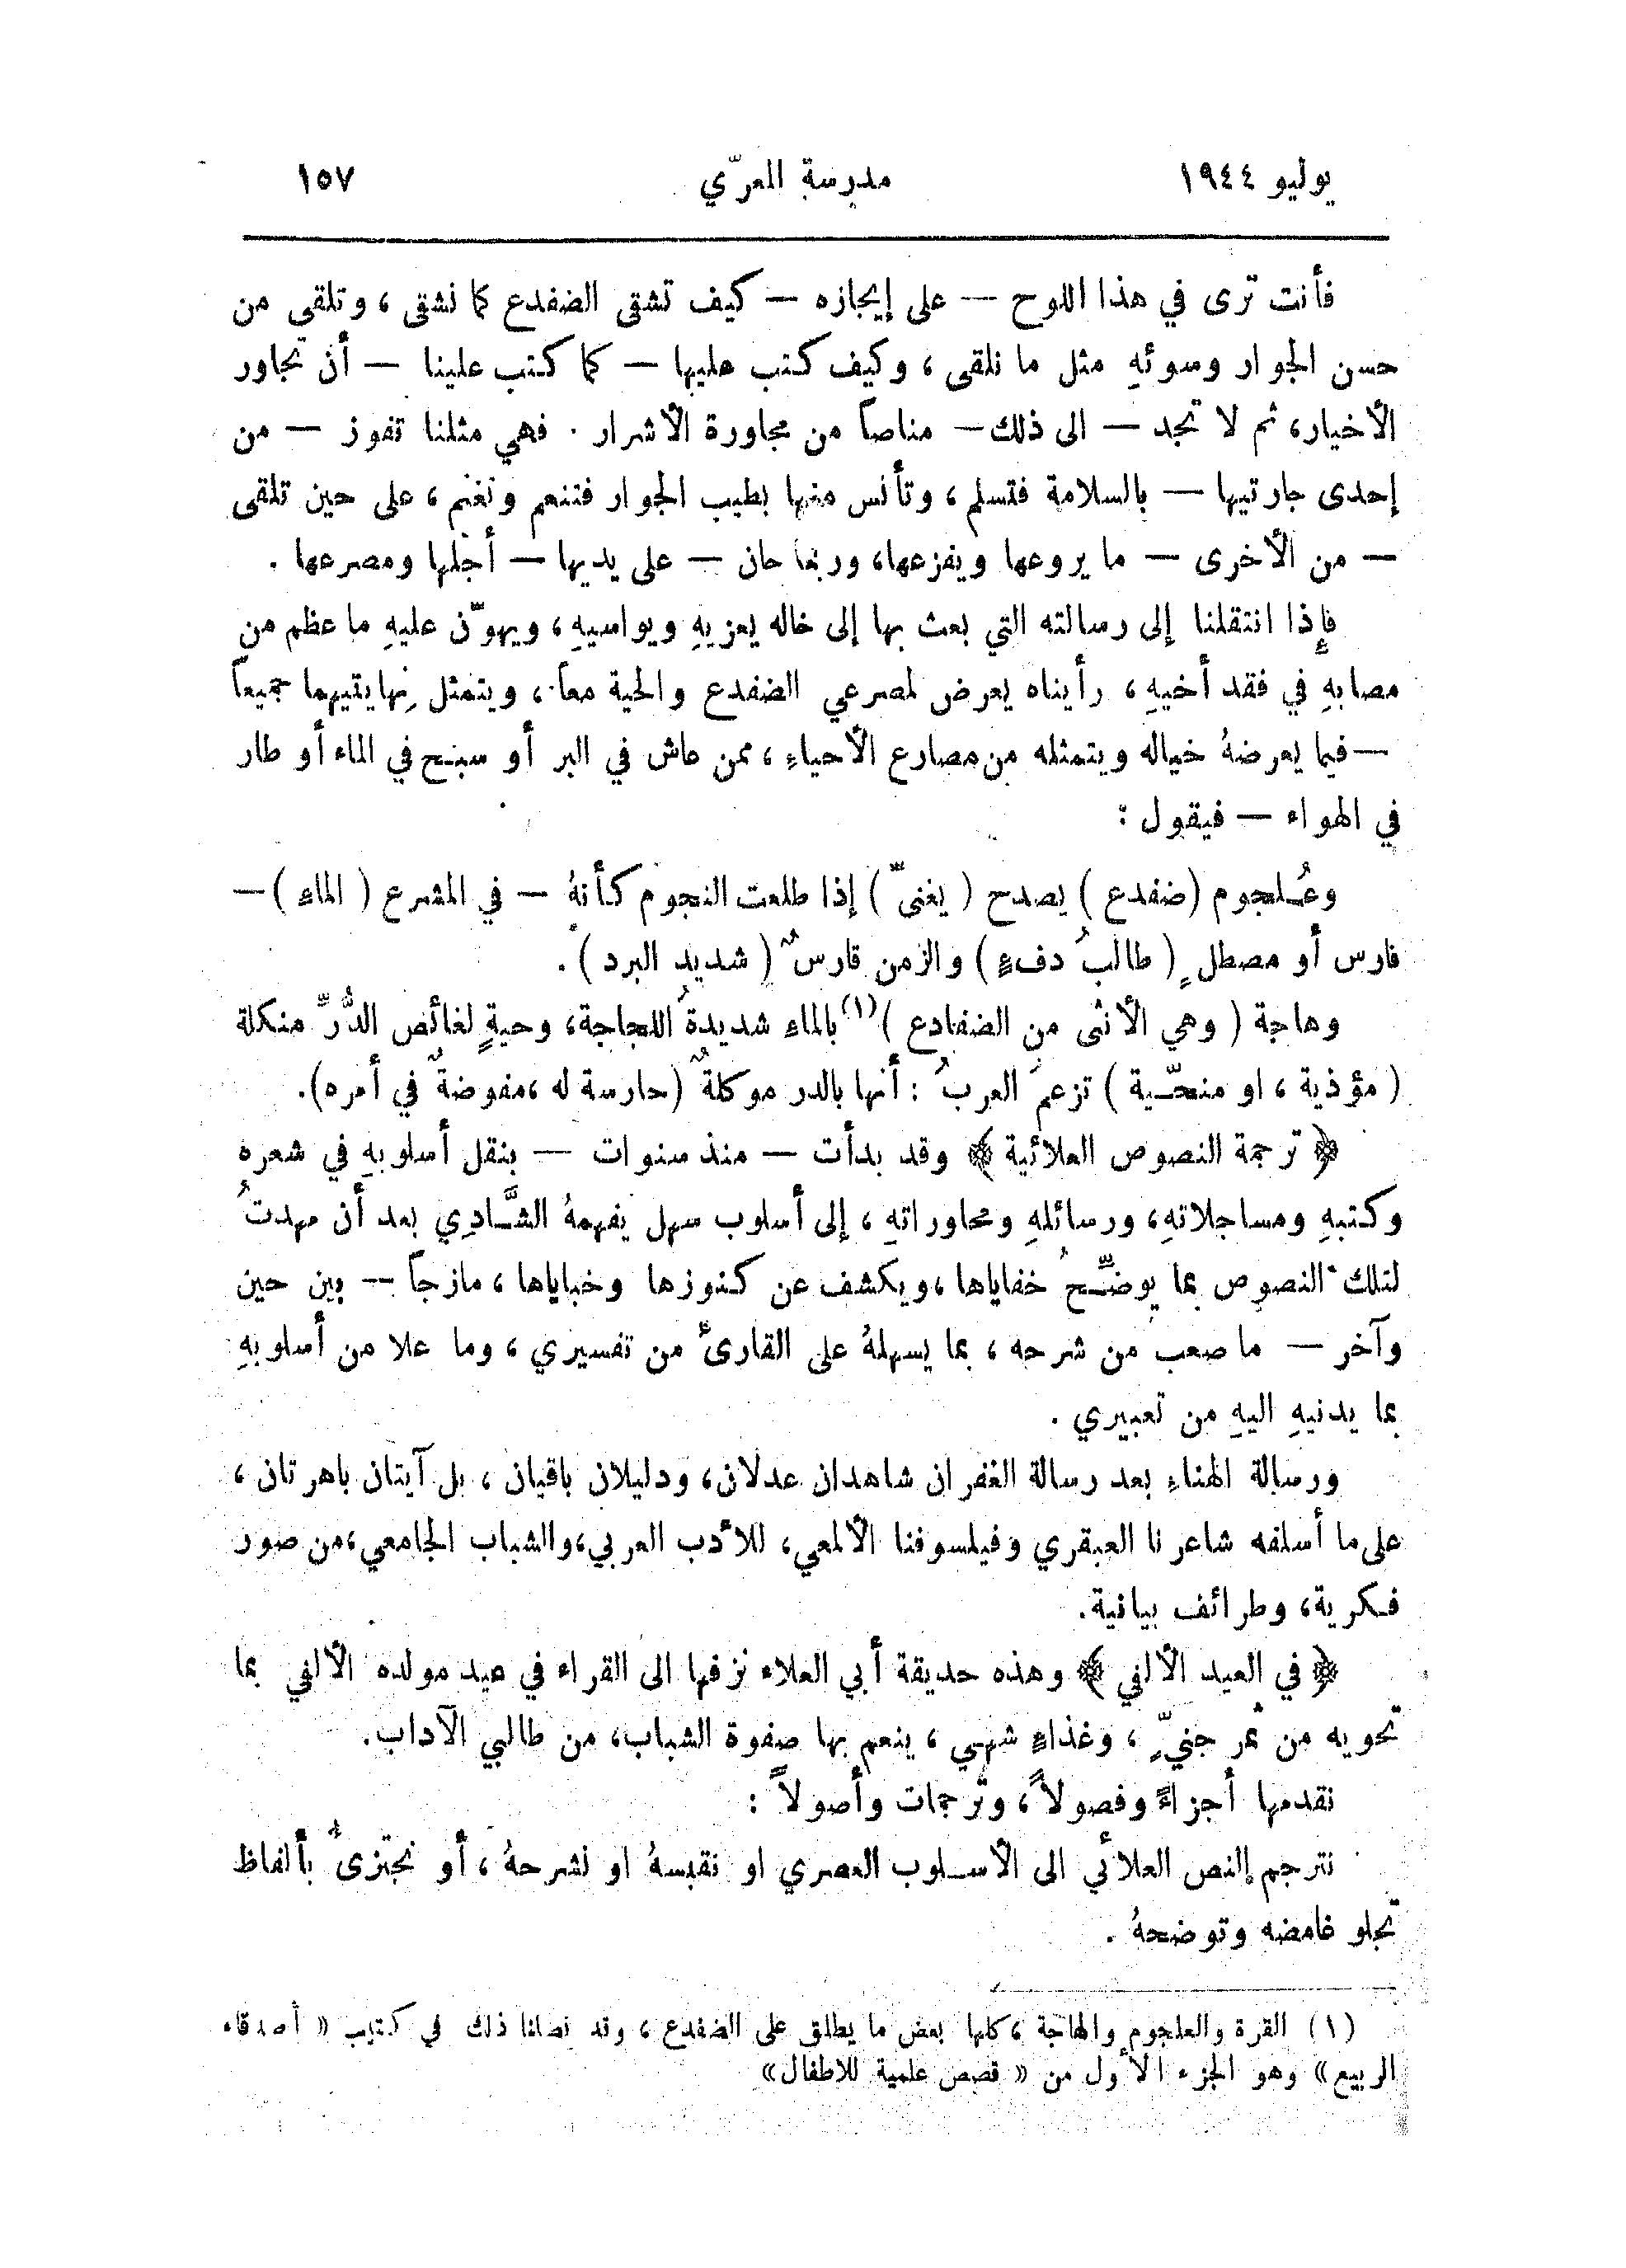 يوليو ١٩٤٤ مدرسة المعرّي ١٥٧
فأنت ترى في هذا اللوح — على إيجازه — كيف تشقى الضفدع كما نشقى ، وتلقى من
حسن الجوار وسوئهِ مثل ما نلقى ، وكيف كتب عليها — كما كتب علينا — أن تجاور
الأخيار، ثم لا تجد — الى ذلك — مناصاً من مجاورة الأشرار . فهي مثلنا تفوز — من
إحدى جارتيها — بالسلامة فتسلم ، وتأنس منها بطيب الجوار فتنعم وتغنم ، على حين تلقى
— من الأخرى — ما يروعها ويفزعها، وربما حان — على يديها — أجلها ومصرعها .
فإذا انتقلنا إلى رسالته التي بعث بها إلى خاله يعزيهِ ويواسيهِ ، ويهوّن عليهِ ما عظم من
مصابهِ في فقد أخيهِ ، رأيناه يعرض لمصرعي الضفدع والحية معاً ، ويتمثل نهايتيهما جميعاً
— فيما يعرضهُ خياله ويتمثله من مصارع الأحياءِ ، ممن عاش في البر أو سبح في الماء أو طار
في الهواء — فيقول :
وعُلجوم (ضفدع) يصدح ( يغنىّ ) إذا طلعت النجوم كأنهُ — في المشرع ( الماء ) —
فارس أو مصطلٍ ( طالبُ دفءٍ ) والزمن قارسٌ ( شديد البرد ) .
وهاجة ( وهي الأنثى من الضفادع )(١) بالماء شديدةُ اللجاجة، وحيةٍ لغائص الدُّرِّ منكلة
( مؤذية ، او منحّية ) تزعم العربُ : أنها بالدر موكلةٌ (حارسة له ،مفوضةٌ في أمره).
﴿ ترجمة النصوص العلائية ﴾ وقد بدأت — منذ سنوات — بنقل أسلوبهِ في شعره
وكتبهِ ومساجلاتهِ، ورسائلهِ ومحاوراتهِ ، إلى أسلوب سهل يفهمهُ الشَّادِي بعد أن مهدتُ
لتلك النصوص بما يوضِّحُ خفاياها ،ويكشف عن كنوزها وخباياها ، مازجاً — بين حين
وآخر — ما صعب من شرحه ، بما يسهلهُ على القارئ من تفسيري ، وما علا من أسلوبهِ
بما يدنيهِ اليهِ من تعبيري .
ورسالة الهناءِ بعد رسالة الغفران شاهدان عدلان، ودليلان باقيان ، بل آيتان باهرتان ،
على ما أسلفه شاعرنا العبقري وفيلسوفنا الألمعي، للأدب العربي،والشباب الجامعي،من صور
فكرية، وطرائف بيانية.
﴿ في العيد الألفي ﴾ وهذه حديقة أبي العلاء نزفها الى القراء في عيد مولده الألفي بما
تحويه من ثمر جنيّ ، وغذاءٍ شهي ، ينعم بها صفوة الشباب، من طالبي الآداب.
نقدمها أجزاءً وفصولاً ، وترجمات وأصولاً :
نترجم النص العلائي الى الأسلوب العصري او نقبسهُ او نشرحهُ ، أو نجتزئُ بألفاظ
تجلو غامضه وتوضحهُ .
(١) القرة والعلجوم والهاجة ،كلها بعض ما يطلق على الضفدع ، وقد فصلنا ذلك في كتيب « أصدقاء
الربيع» وهو الجزء الأول من « قصص علمية للاطفال»